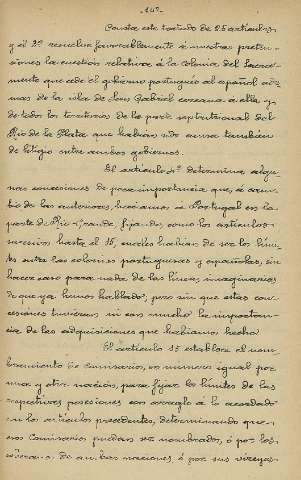 -142-
Consta este tratado de 25 artículos
y el 2º resuelve favorablemente á nuestras preten-
siones la cuestión relativa á la Colonia del Sacra-
mento que cede el gobierno portugués al español ade-
mas de la isla de San Gabriel cercana a ella y
de todos los terrenos de la parte septentrional del
Rio de la Plata que habian sido causa tambien
de litigio entre ambos gobiernos.
El artículo 4º determina algu-
nas concesiones de poca importancia que, á cam-
bio de las anteriores, haciamos a Portugal en la
parte de Rio Grande, fijando, como los artículos
sucesivos hasta el 15, cuales habian de ser los limi-
tes entre las colonias portuguesas y españolas, sin
hacer caso para nada de las lineas imaginarias
de que ya hemos hablado, pero sin que estas con-
cesiones tuvieran ni con mucho la importan-
cia de las adquisiciones que habiamos hecho
El artículo 15 establece el nom-
bramiento de Comisarios, en número igual por
una y otra nación, para fijar los limites de las
respectivas posesiones con arreglo á lo acordado
en los artículos precedentes, determinando que
esos Comisarios puedan ser nombrados, ó por los
soberanos de ambas naciones ó por sus vireyes